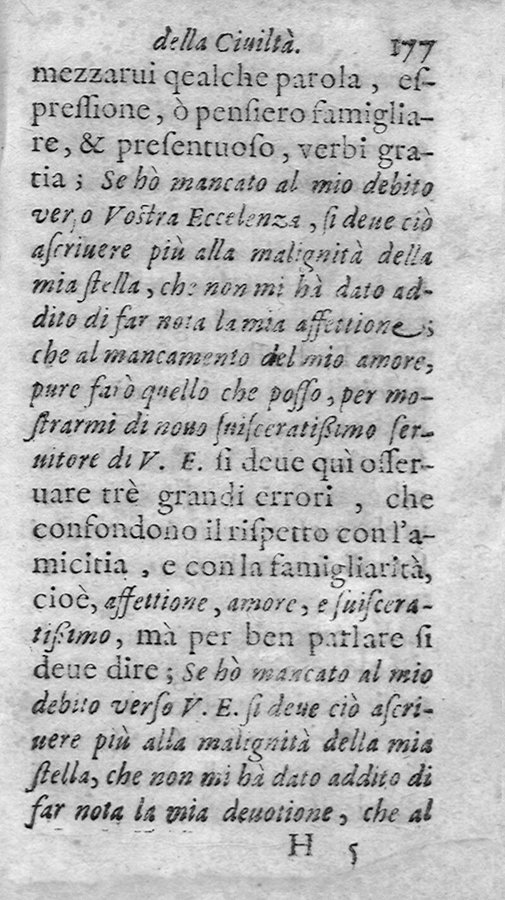 della Ciuiltà. 177
mezzarui qealche parola, eſ-
preſſione, ò penſiero famiglia-
re, & preſentuoſo, verbi gra-
tia; Se hò mancato al mio debito
verſo Voſtra Eccelenza, ſi deue ciò
aſcriuere più alla malignità della
mia ſtella, che non mi hà dato ad-
dito di far nota la mia affettione;
che al mancamento del mio amore,
pure farò quello che poſſo, per mo-
ſtrarmi di nouo ſuiſceratißimo ſer-
uitore di V. E. ſi deue quì oſſer-
uare trè grandi errori, che
confondono il riſpetto con l'a-
micitia, e con la famigliarità,
cioè, affettione, amore, e ſuiſcera-
tißimo, mà per ben parlare ſi
deue dire; Se hò mancato al mio
debito verſo V. E. ſi deue ciò aſcri-
uere più alla malignità della mia
ſtella, che non mi hà dato addito di
far nota la mia deuotione, che al
H 5